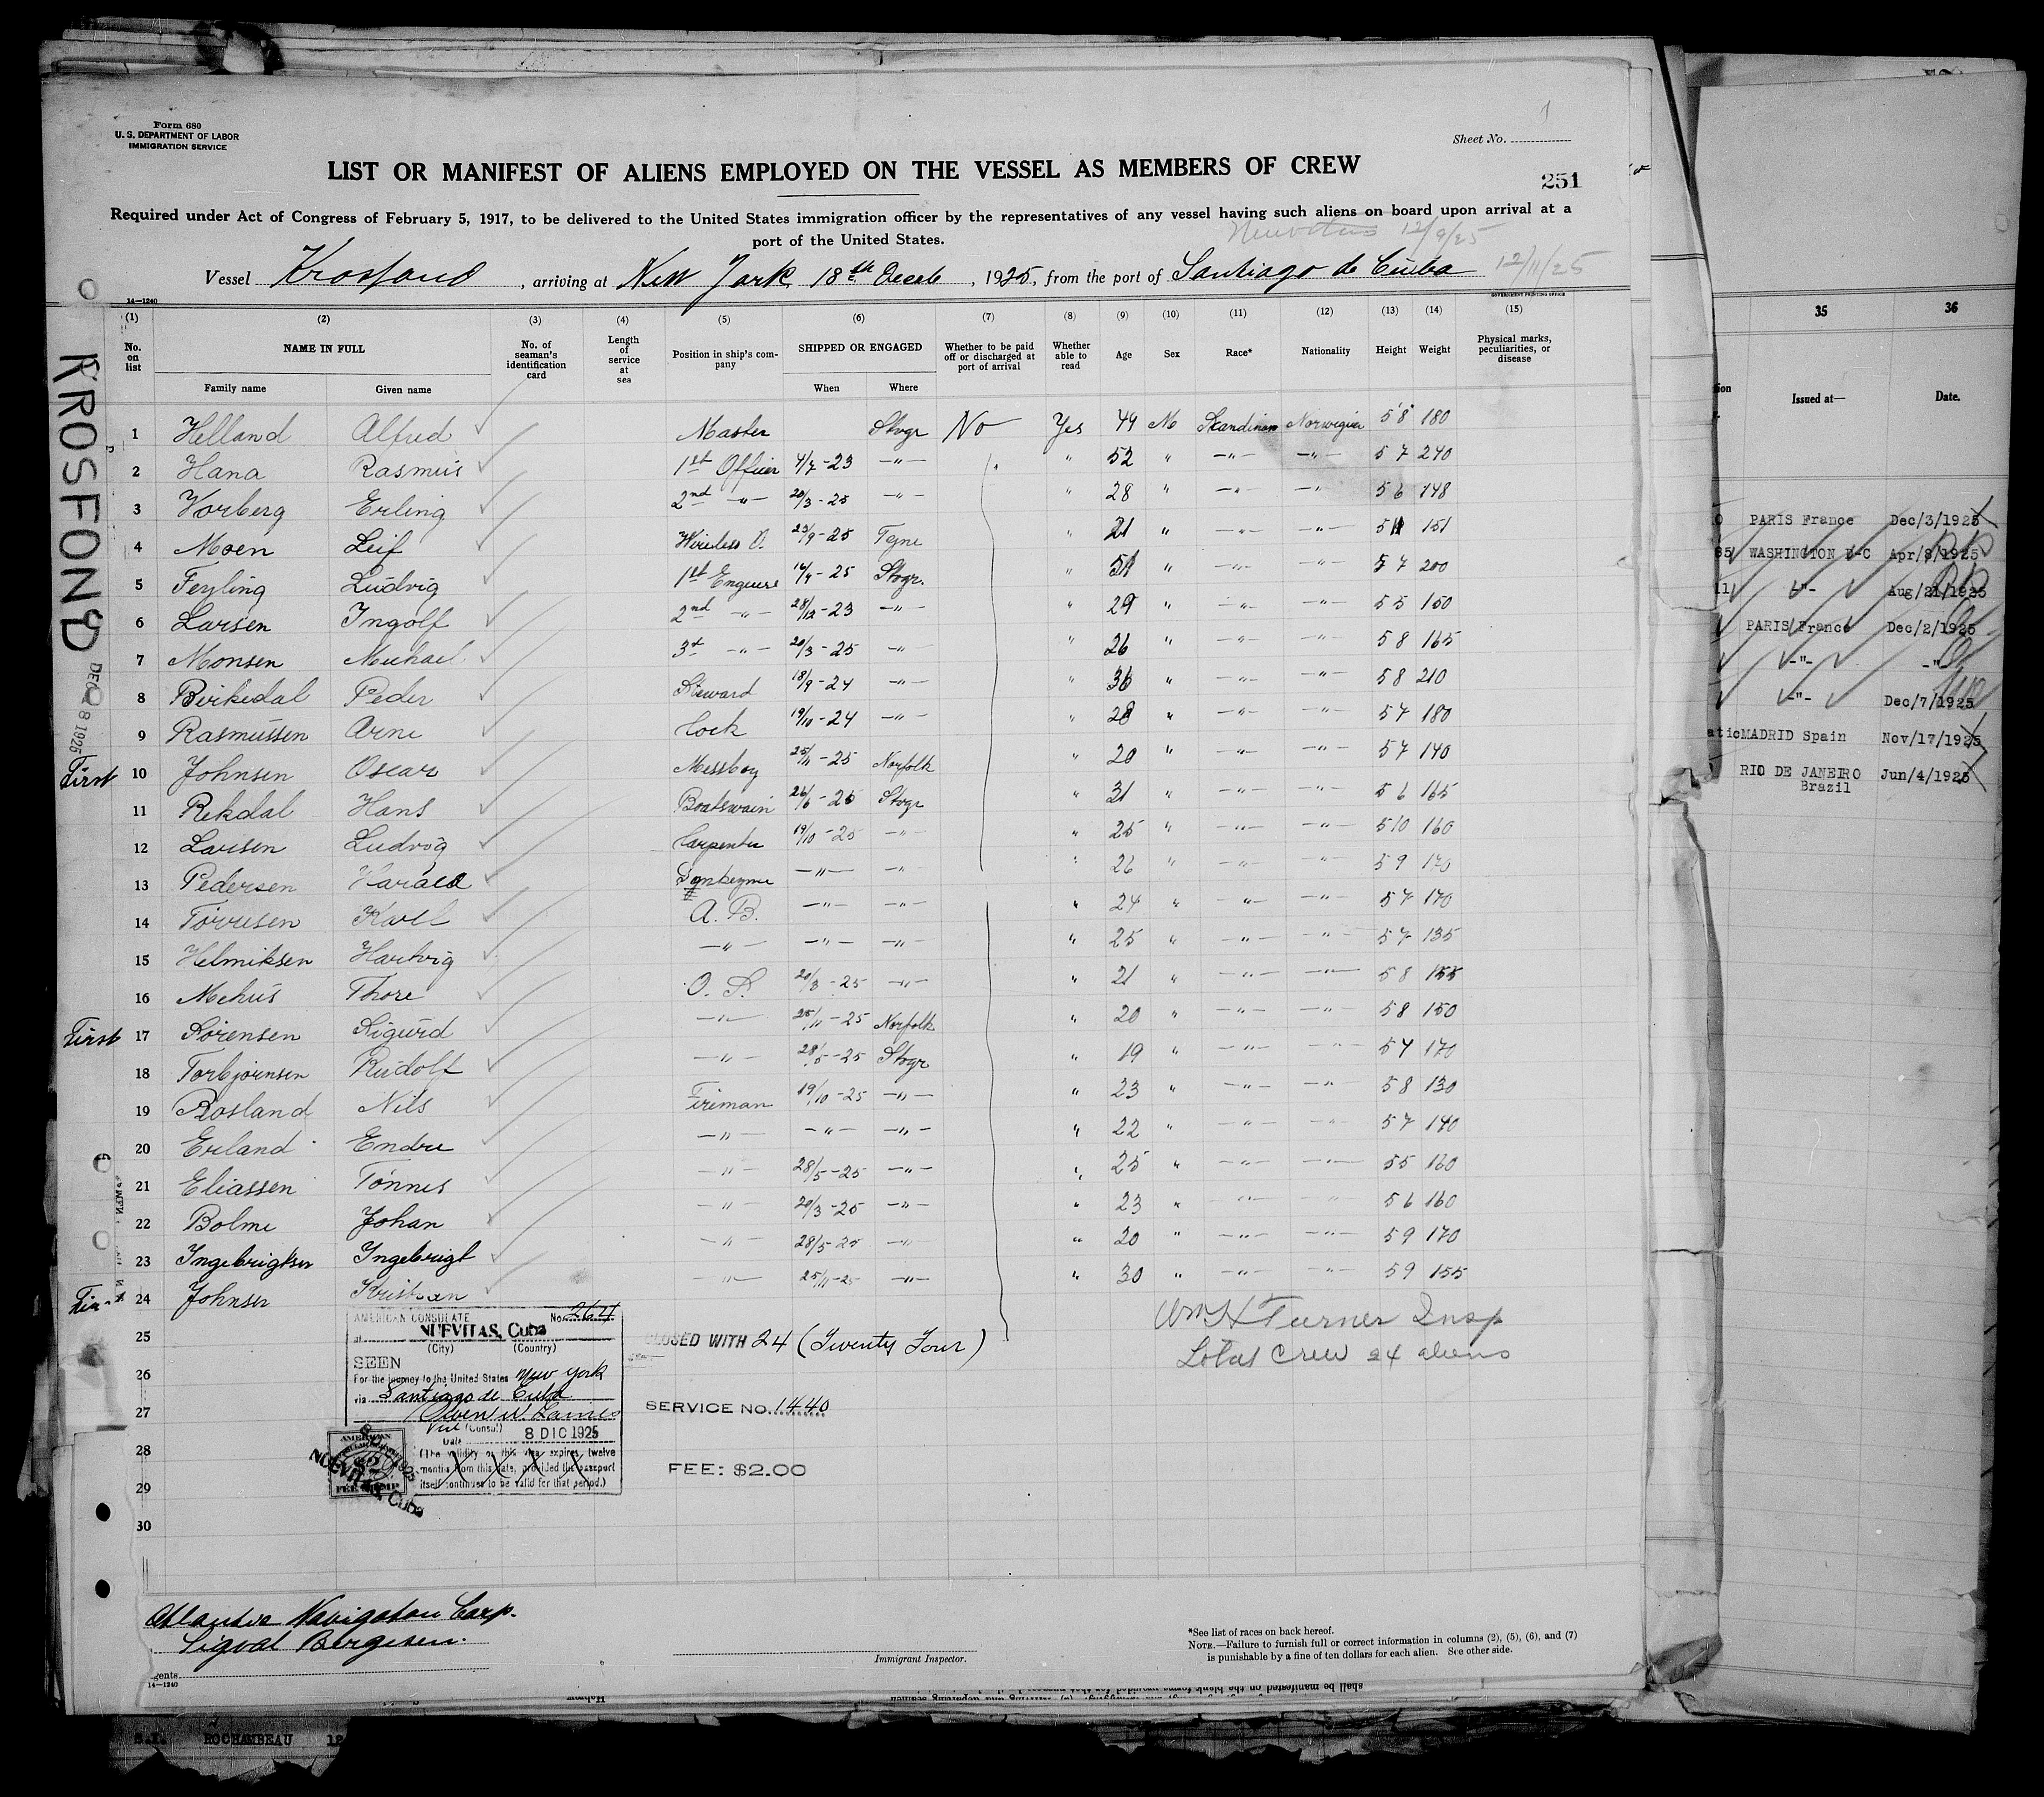 Form 680
U. S. DEPARTMENT OF LABOR
IMMIGRATION SERVICE
Sheet No. 1
LIST OR MANIFEST OF ALIENS EMPLOYED ON THE VESSEL AS MEMBERS OF CREW
251
Required under Act of Congress of February 5, 1917, to be delivered to the United States immigration officer by the representatives of any vessel having such aliens on board upon arrival at a
port of the United States.
Nuevitas 12/9/25
Vessel Krosfond, arriving at New York 18th Deceb, 1925, from the port of Santiago de Cuba 12/11/25
14—1240
GOVERNMENT PRINTING OFFICE
(1) (2) (3) (4) (5) (6) (7) (8) (9) (10) (11) (12) (13) (14) (15)
No. on list
NAME IN FULL
Family name Given name
No. of seaman's identification card
Length of service at sea
Position in ship's company
SHIPPED OR ENGAGED
When Where
Whether to be paid off or discharged at port of arrival
Whether able to read
Age Sex Race* Nationality Height Weight
Physical marks, peculiarities, or disease
KROSFOND
DEC 18 1925
1 Helland Alfred Master Stvgr No Yes 49 M Skandinav Norwegian 5'8" 180
2 Hana Rasmus 1st Officer 4/7-23 —"— " 52 " —"— —"— 5 7 240
3 Vorberg Erling 2nd —"— 20/3-25 —"— " 28 " —"— —"— 5 6 148
4 Moen Leif Wireless O. 23/9-25 " 21 " —"— —"— 5 11 151
5 Feyling Ludvig 1st 25 Stvgr. " 51 " —"— —"— 5 7 200
6 Larsen Ingolf 2nd —"— 28/12-23 —"— " 29 " —"— —"— 5 5 150
7 Monsen Michael 3d —"— 20/3-25 —"— " 26 " —"— —"— 5 8 165
8 Birkedal Peder Steward 18/9-24 —"— " 36 " —"— —"— 5 8 210
9 Rasmussen Arne Cock 19/10-24 —"— " 28 " —"— —"— 5 7 180
First 10 Johnsen Oscar Messboy 25/11-25 Norfolk " 20 " —"— —"— 5 7 140
11 Rekdal Hans Boatswain 26/6-25 Stvgr " 31 " —"— —"— 5 6 165
12 Larsen Ludvig Carpenter 19/10-25 —"— " 25 " —"— —"— 5 10 160
13 Pedersen Harald —"— —"— " 26 " —"— —"— 5 9 170
14 Karl A. B. —"— —"— " 24 " —"— —"— 5 7 170
15 Helmiksen Hartvig —"— —"— —"— " 25 " —"— —"— 5 7 135
16 Mehus Thore O. S. 20/3-25 —"— " 21 " —"— —"— 5 8 155
First 17 Sörensen Sigurd —"— 25/11-25 Norfolk " 20 " —"— —"— 5 8 150
18 Torbjørnsen Rudolf —"— 28/5-25 Stvgr " 19 " —"— —"— 5 7 170
19 Rosland Nils Fireman 19/10-25 —"— " 23 " —"— —"— 5 8 130
20 Erland Endre —"— —"— —"— " 22 " —"— —"— 5 7 140
21 Eliassen Tönnes —"— 28/5-25 —"— " 25 " —"— —"— 5 5 160
22 Bolme Johan —"— 20/3-25 —"— " 23 " —"— —"— 5 6 160
23 Ingebrigtsen Ingebrigt —"— 28/5-25 —"— " 20 " —"— —"— 5 9 170
First 24 Johnsen Kristian —"— 25/11-25 —"— " 30 " —"— —"— 5 9 155
25
26
27
28
29
30
AMERICAN CONSULATE No. 264
at NUEVITAS, Cuba
(City) (Country)
SEEN
For the journey to the United States New York
via Santiago de Cuba
Vice (Consul)
Date 8 DIC 1925
(The validity of this visa expires twelve
months from this date, provided the passport
itself continues to be valid for that period.)
AMERICAN
$2
FEE STAMP
NUEVITAS, Cuba
CLOSED WITH 24 (Twenty Four)
SERVICE NO. 1440
FEE: $2.00
Wm H Turner Insp
Total Crew 24 aliens
Atlantic Navigation Corp.
Sigval Bergesen.
gents
14—1240
Immigrant Inspector.
*See list of races on back hereof.
NOTE.—Failure to furnish full or correct information in columns (2), (5), (6), and (7)
is punishable by a fine of ten dollars for each alien. See other side.
35 36
Issued at— Date.
PARIS France Dec/3/1925
WASHINGTON D-C Apr/8/1925
-"- Aug/21/1925
PARIS France Dec/2/1925
-"- -"-
-"- Dec/7/1925
MADRID Spain Nov/17/1925
RIO DE JANEIRO Jun/4/1925
Brazil
shall be manifested on the blank forms
S.I. ROCHAMBEAU 12